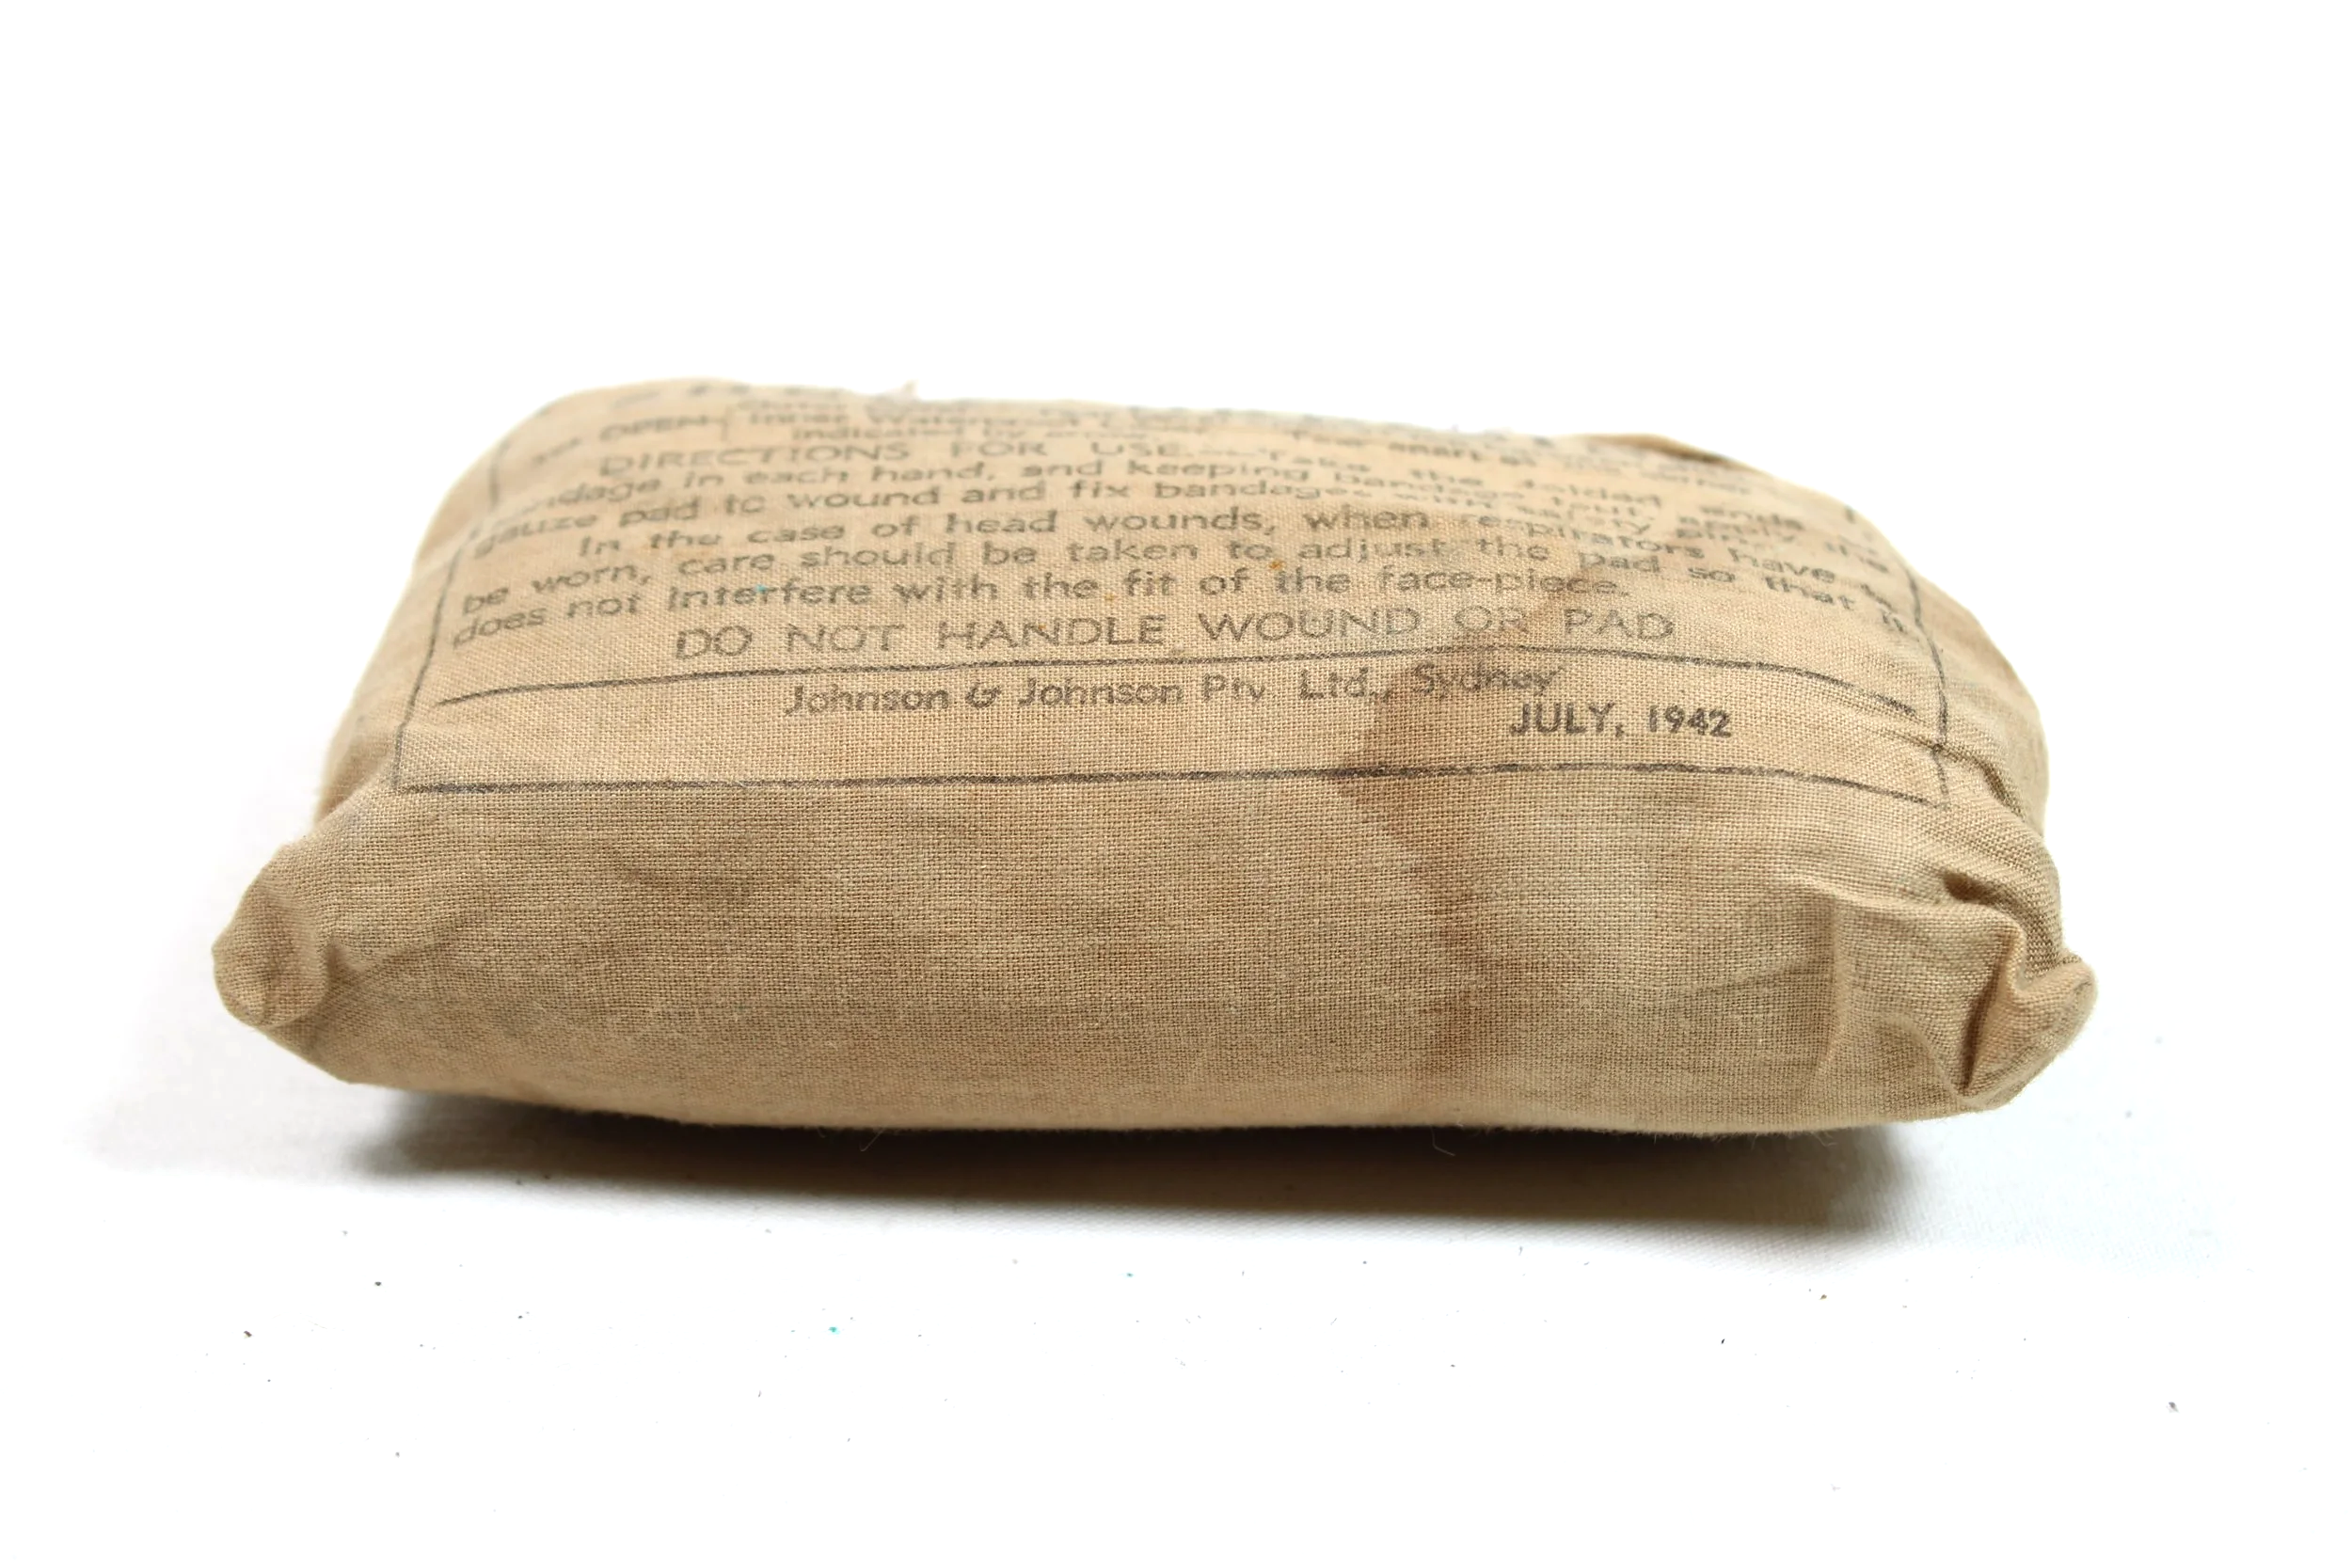 OPEN—
Inner Waterproof
indicated by
DIRECTIONS FOR USE.—Take the folded ends
bandage in each hand, and keeping bandage taut apply the
gauze pad to wound and fix bandage with safety pin.
In the case of head wounds, when respirators have to
be worn, care should be taken to adjust the pad so that it
does not interfere with the fit of the face-piece.
DO NOT HANDLE WOUND OR PAD
Johnson & Johnson Pty. Ltd., Sydney
JULY, 1942